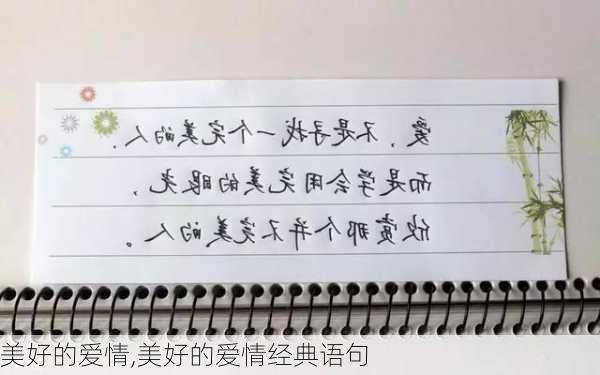 爱，不是寻找一个完美的人，
而是学会用完美的眼光，
欣赏那个并不完美的人。
美好的爱情,美好的爱情经典语句